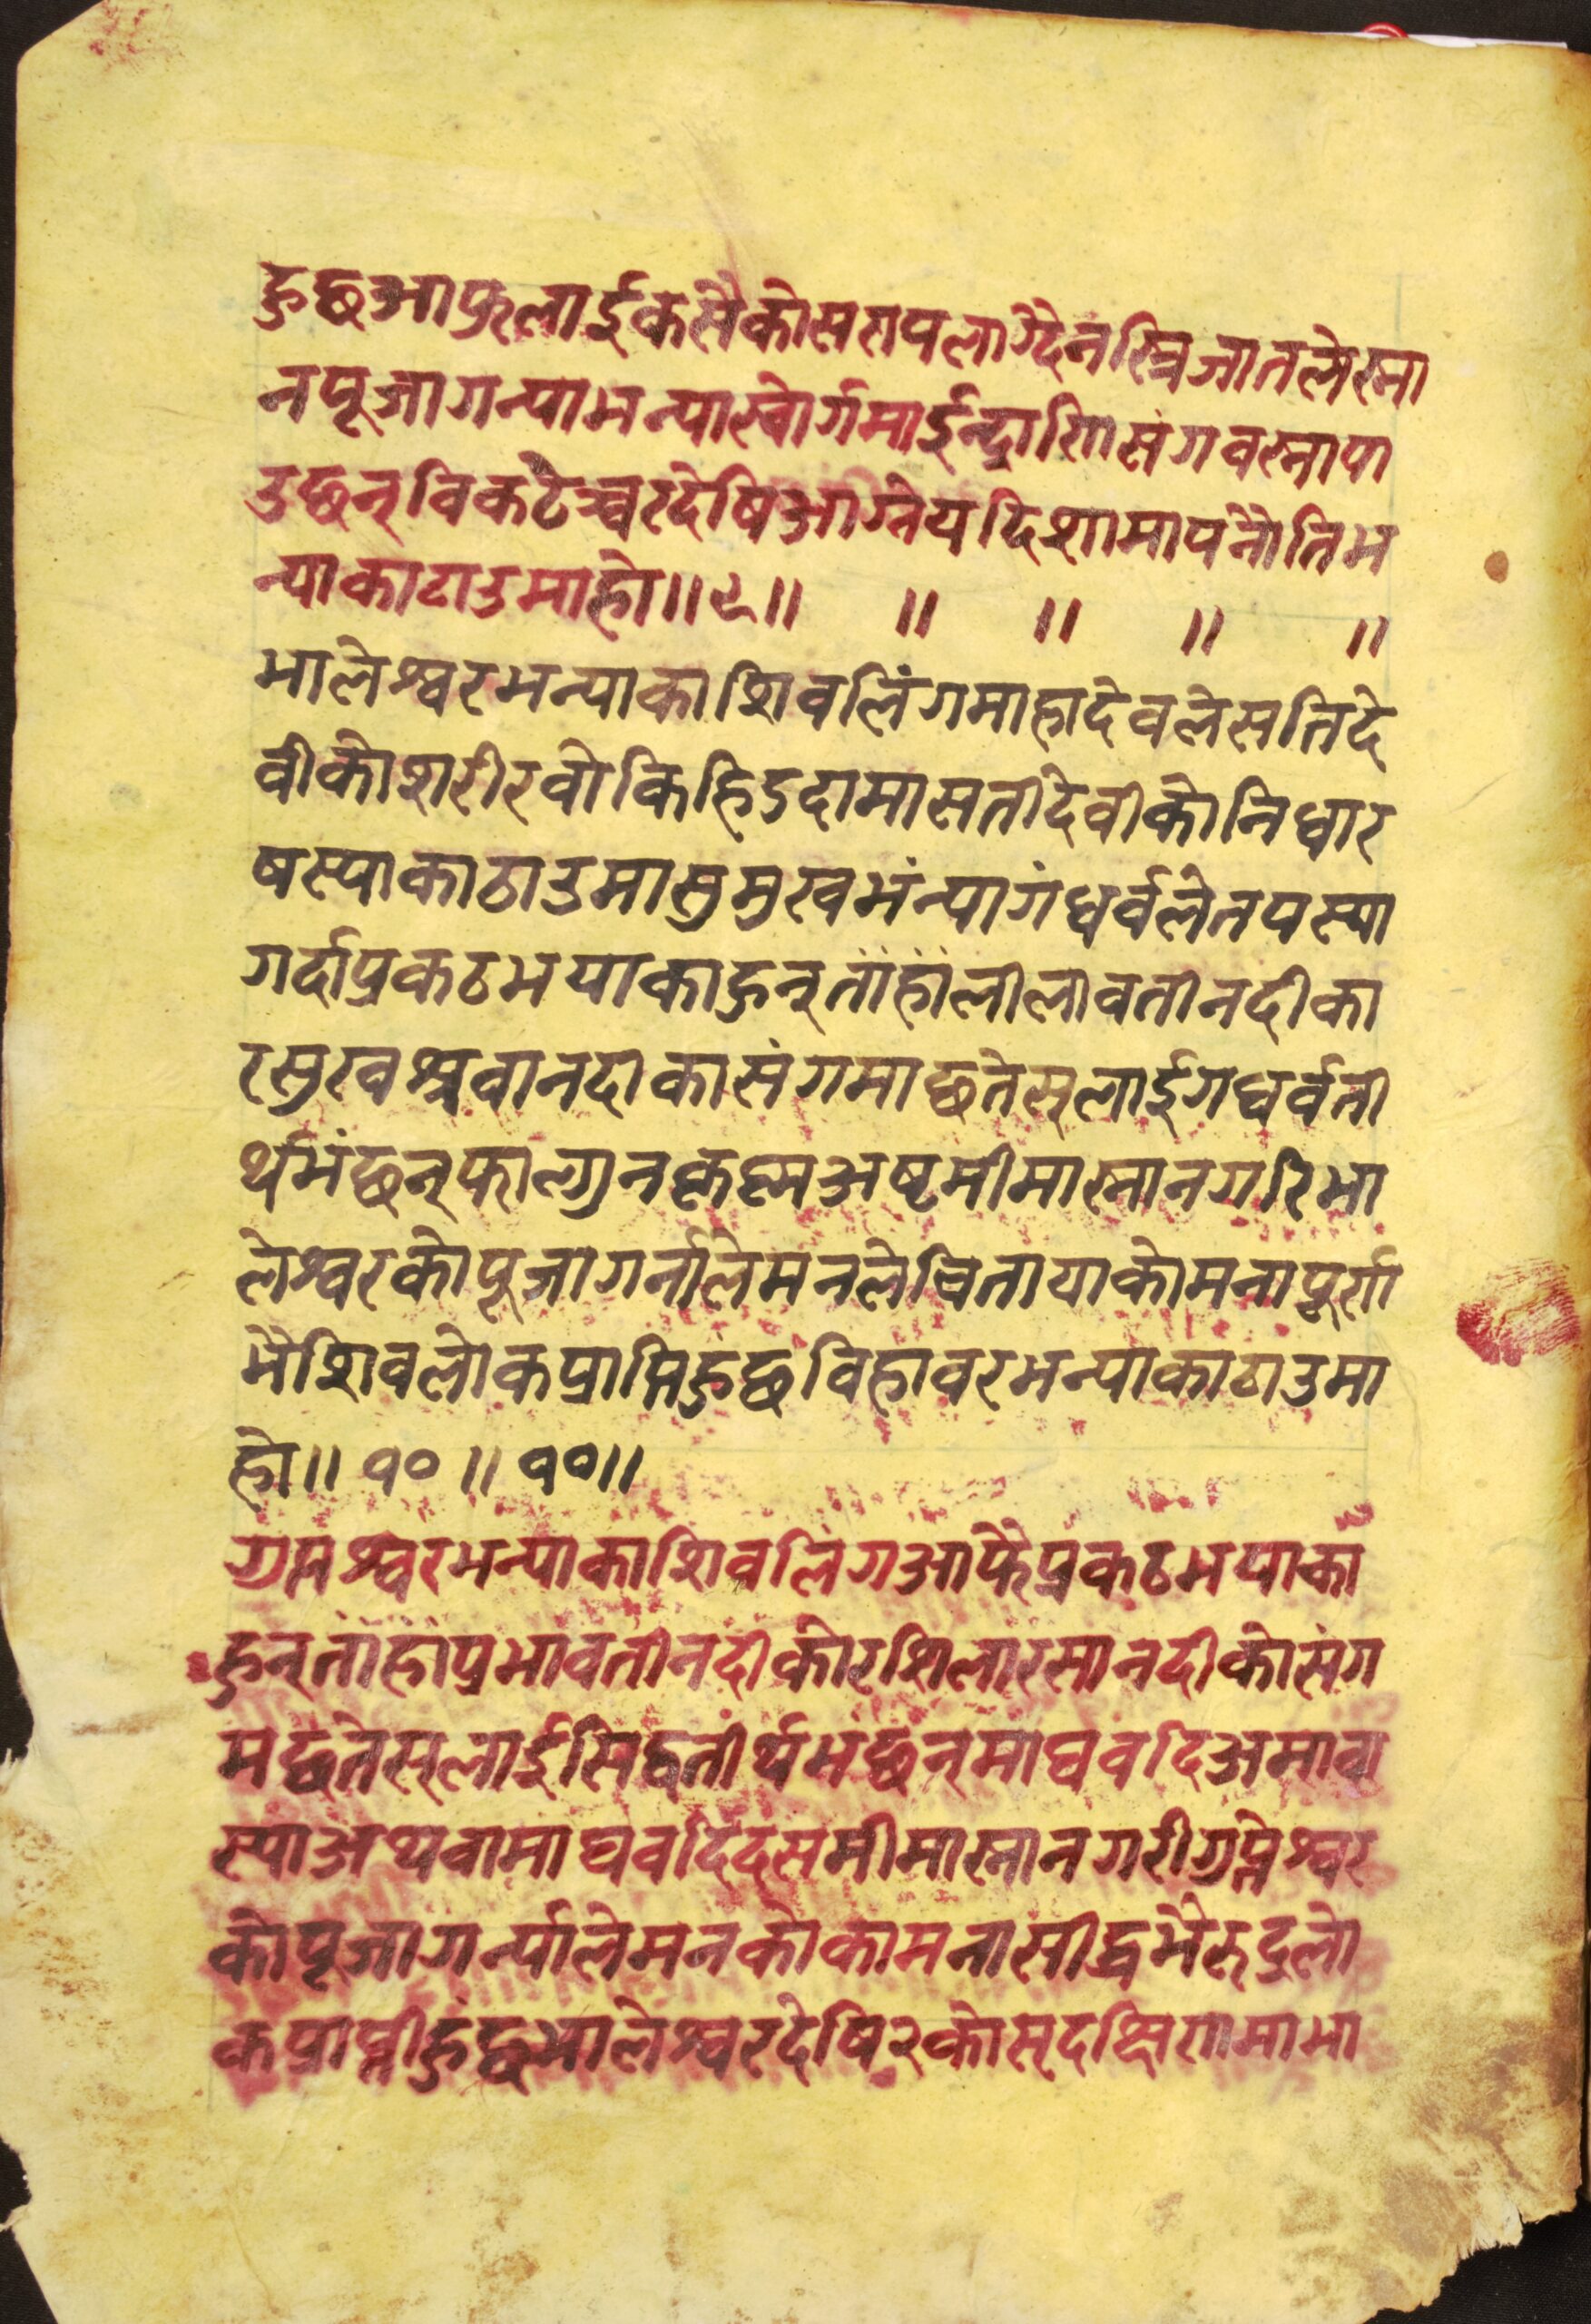 हुछआफुलाईकसैकोसरापलाग्दैनस्त्रिजातलेस्ना
नपूजागन्याभन्यास्वोर्गमाईन्द्राणिसंगवस्नापा
उछन्विकटेच्वरदेषिआग्नेयदिशामापनौतिभ
न्याकाठाउमाहो॥९॥ ॥ ॥ ॥ ॥
भालेश्वरभन्याकाशिवलिंगमाहादेवलेसतिदे
वीकोशरीरवोकिहिडदामासतीदेवीकोनिधार
षस्याकाठाउमासुमुखभंन्यागंधर्वलेतपस्या
गर्दाप्रकठभयाकाहुन्तांहांलीलावतीनदीका
रसुखश्रवानदीकासंगमाछतेस्लाईगधर्वती
र्थभंछन्फाल्गुनकृष्णअष्टमीमास्नानगरिभा
लेश्वरकोपूजागर्नालेमनलेचितायाकोमनापूर्ण
भैशिवलोकप्राप्तिहुंछविहावरभन्याकाठाउमा
हो॥१०॥१०॥
गुप्तश्वरभन्याकाशिवलिंगआफैप्रकठभयाका
हुन्तांहांप्रभावतीनदीकोरशिलारसानदीकोसंग
मछतेस्लाईसिद्धतीर्थभंछन्माघवदिअमावा
स्याअथवामाघवदिदसमीमास्नानगरीगुप्तेश्वर
कोपूजागर्न्यालेमनकोकामनासीद्धभैरुद्रलो
कप्राप्तीहुंछभालेश्वरदेषि२कोस्दक्षिणमामा